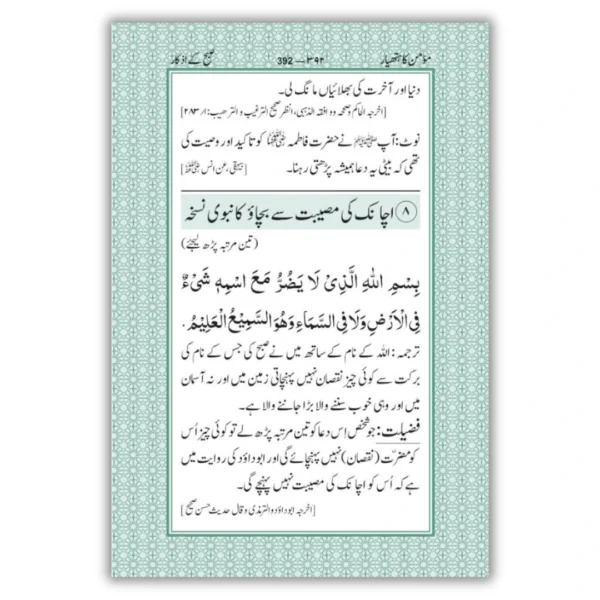 مؤمن کا ہتھیار 392—۳۹۲ صبح کے اذکار
دنیا اور آخرت کی بھلائیاں مانگ لی۔
[اخرجہ الحاکم وصححہ ووافقہ الذہبی، انظر صحیح الترغیب والترھیب: ۲۸۳/۱]
نوٹ: آپ ﷺ نے حضرت فاطمہ رضی اللہ عنہا کو تاکید اور وصیت کی
تھی کہ بیٹی یہ دعا ہمیشہ پڑھتی رہنا۔ [بیہقی، عن انس رضی اللہ عنہ]
۸ اچانک کی مصیبت سے بچاؤ کا نبوی نسخہ
(تین مرتبہ پڑھ لیجئے)
بِسْمِ اللهِ الَّذِیْ لَا یَضُرُّ مَعَ اسْمِهٖ شَیْءٌ
فِی الْاَرْضِ وَلَا فِی السَّمَاءِ وَهُوَ السَّمِیْعُ الْعَلِیْمُ.
ترجمہ: اللہ کے نام کے ساتھ میں نے صبح کی جس کے نام کی
برکت سے کوئی چیز نقصان نہیں پہنچاتی زمین میں اور نہ آسمان
میں اور وہی خوب سننے والا بڑا جاننے والا ہے۔
فضیلت: جو شخص اس دعا کو تین مرتبہ پڑھ لے تو کوئی چیز اُس
کو مضرت (نقصان) نہیں پہنچائے گی اور ابو داؤد کی روایت میں
ہے کہ اُس کو اچانک کی مصیبت نہیں پہنچے گی۔
[اخرجہ ابو داؤد والترمذی وقال حدیث حسن صحیح]